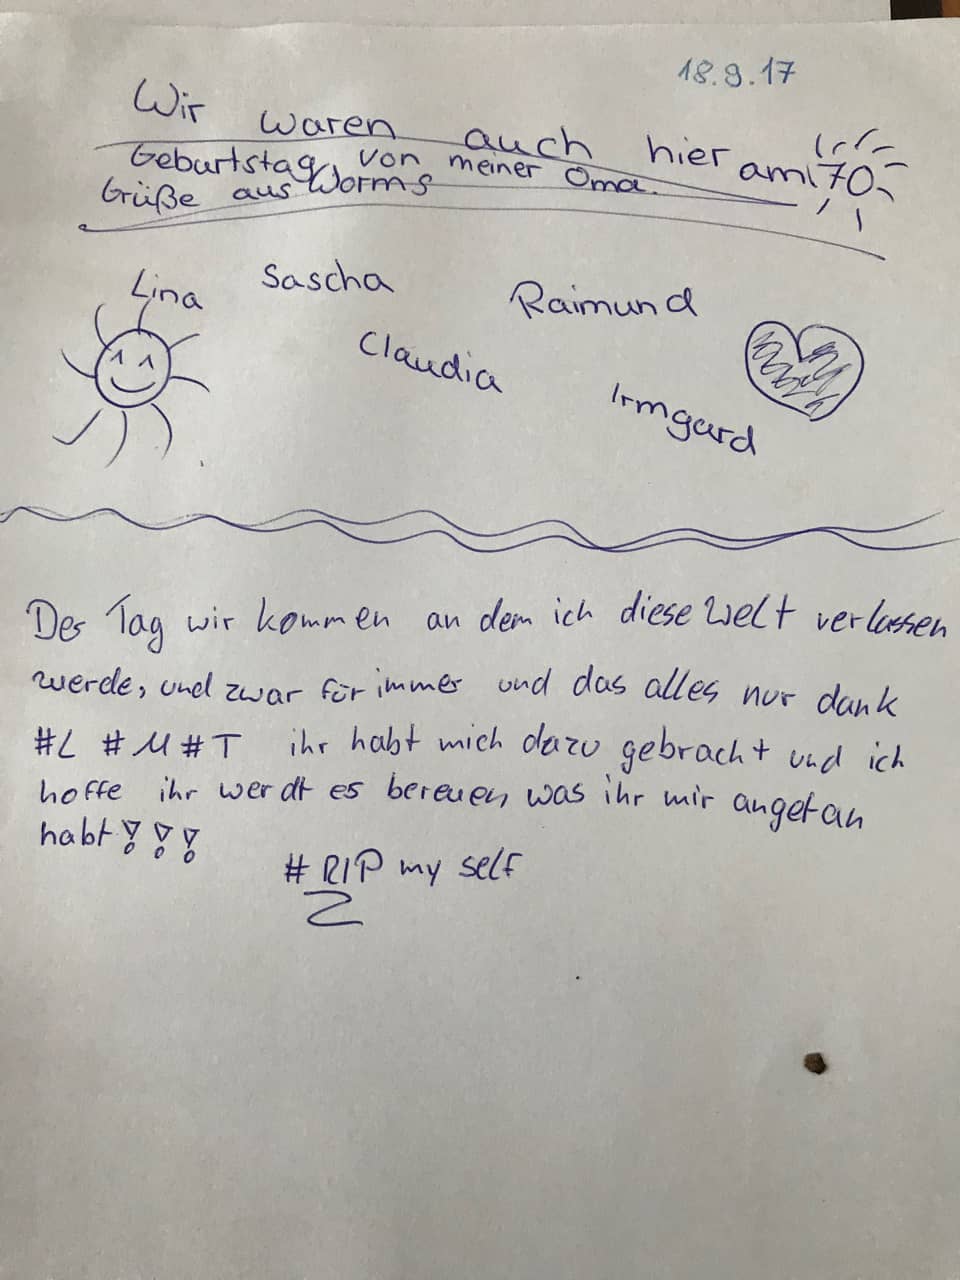 18.9.17
Wir waren auch hier am 70
Geburtstag von meiner Oma.
Grüße aus Worms
Lina
Sascha
Raimund
Claudia
Irmgard
Der Tag wir kommen an dem ich diese Welt verlassen
werde, und zwar für immer und das alles nur dank
#L #M #T ihr habt mich dazu gebracht und ich
hoffe ihr werdt es bereuen, was ihr mir angetan
habt!!!
# RIP my self